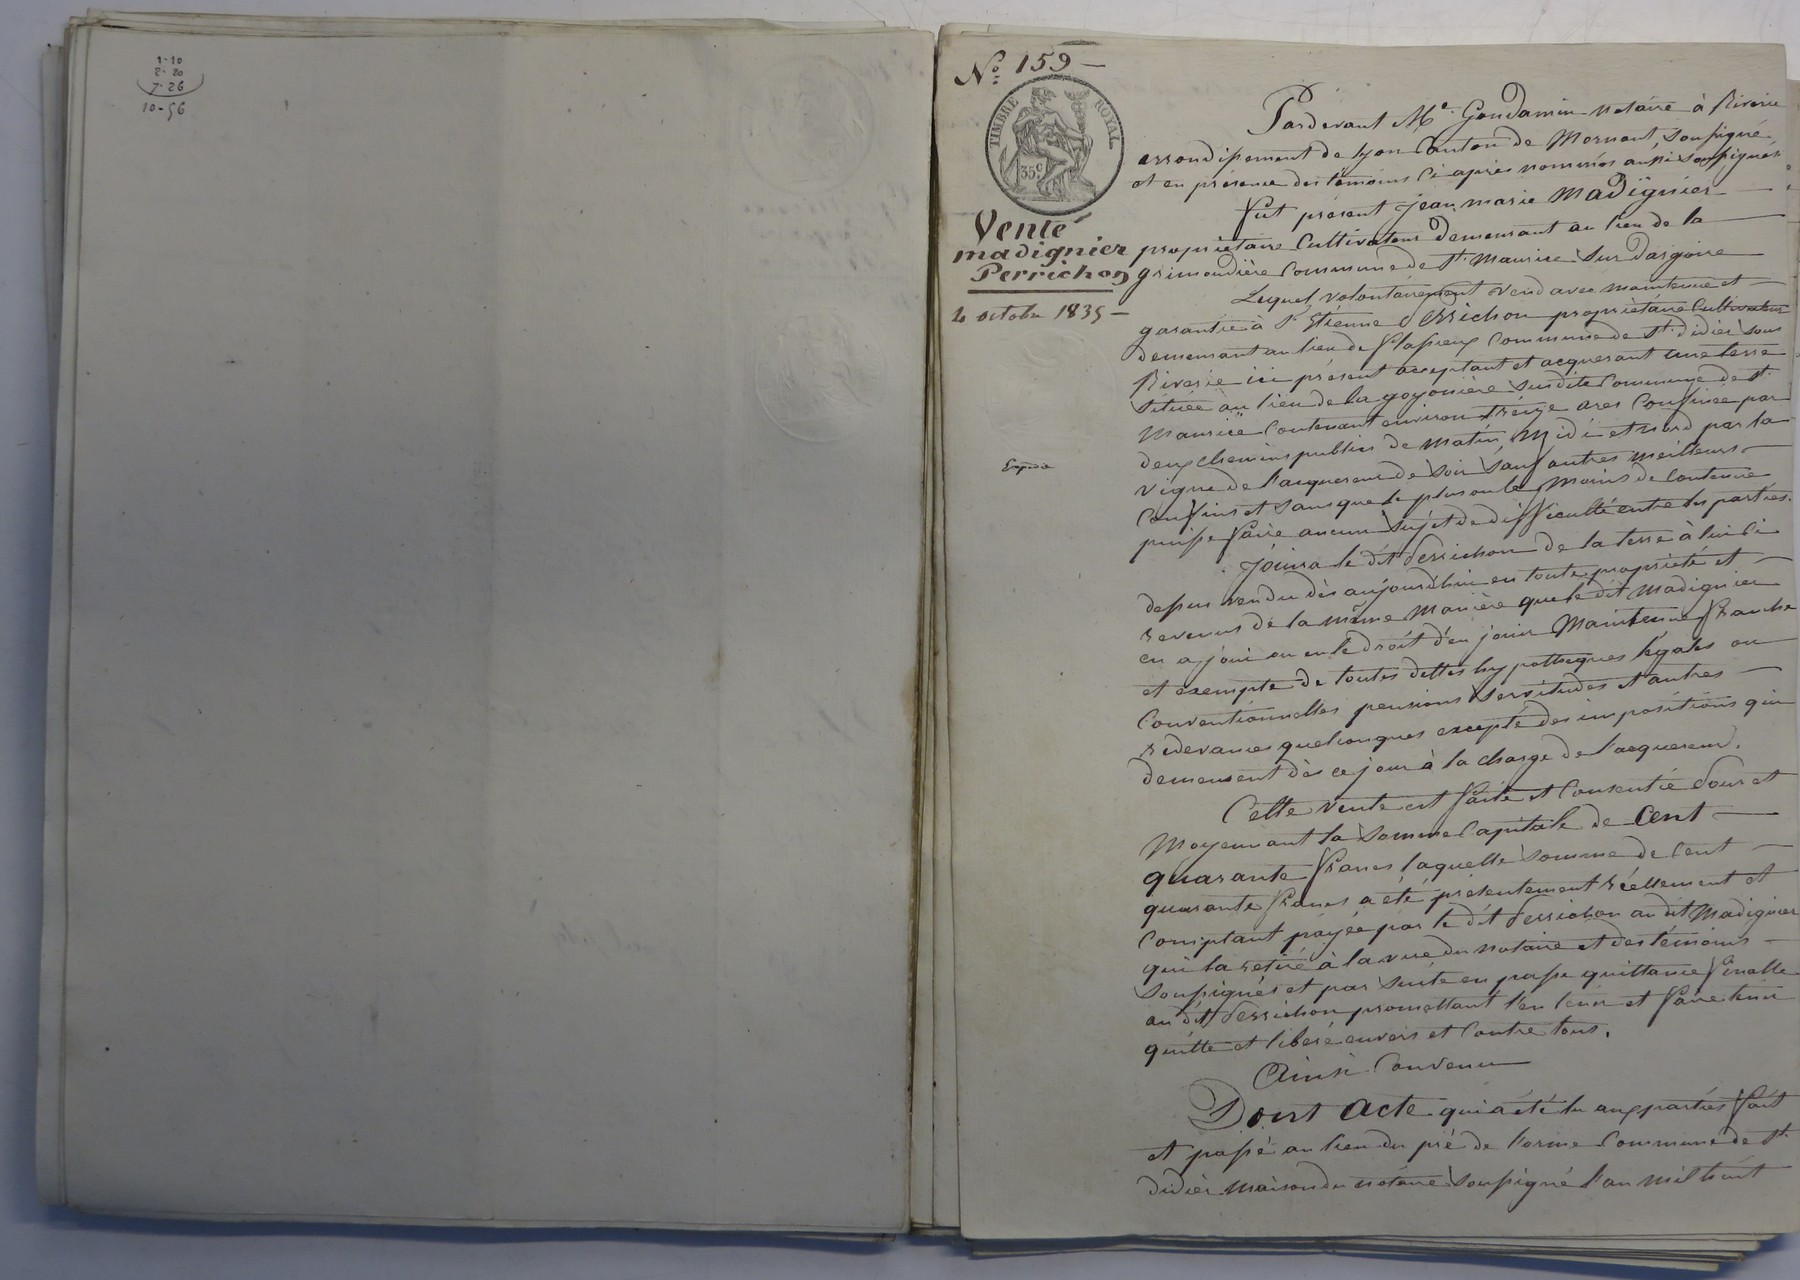 1-10
2-20
7-26
10-56
N.° 159 —
TIMBRE ROYAL
35 c.
Vente
madignier
Perrichon
4 octobre 1835 —
Expédié
Pardevant M.e Gondamin notaire à Riverie
arrondissement de Lyon canton de Mornant, soussigné,
et en présence des témoins ci après nommés aussi soussignés
fut présent Jean marie Madignier —
propriétaire cultivateur demeurant au lieu de la
grimondière commune de St. Maurice sur dargoire
Lequel volontairement vend avec maintenue et —
garantie à Sr Etienne Perrichon propriétaire cultivateur
demeurant au lieu de flapieux commune de St. didier sous
Riverie ici présent acceptant et acquérant une terre
située au lieu de la goyonière susdite commune de St.
Maurice contenant environ treize ares confinée par
deux chemins publics de matin, Midi et nord par la
vigne de l'acquereur de soir sauf autres meilleurs —
confins et sans que le plus ou le moins de contenue
puisse faire aucun sujet de difficulté entre les parties.
Jouira le dit Perrichon de la terre à lui ci
dessus vendu dès aujourd'hui en toute propriété et —
revenus de la même manière que le dit Madignier
en a joui ou eu le droit d'en jouir Maintenue franche
et exempte de toutes dettes hypothèques légales ou
conventionnelles pensions servitudes et autres —
redevances quelconques excepté des impositions qui
demeurent dès ce jour à la charge de l'acquereur.
Cette vente est faite et consentie pour et
Moyennant la somme capitale de cent —
quarante francs laquelle somme de cent —
quarante francs a été présentement réellement et
comptant payée par le dit Perrichon au dit Madignier
qui la retiré à la vue du notaire et des témoins —
soussignés et par suite en passe quittance finalle
au dit Perrichon promettant l'en tenir et faire tenir
quitte et libéré envers et contre tous.
Ainsi convenu
Dont acte qui a été lu aux parties fait
et passé au lieu du pré de l'orme commune de St.
didier maison du notaire soussigné l'an mil huit